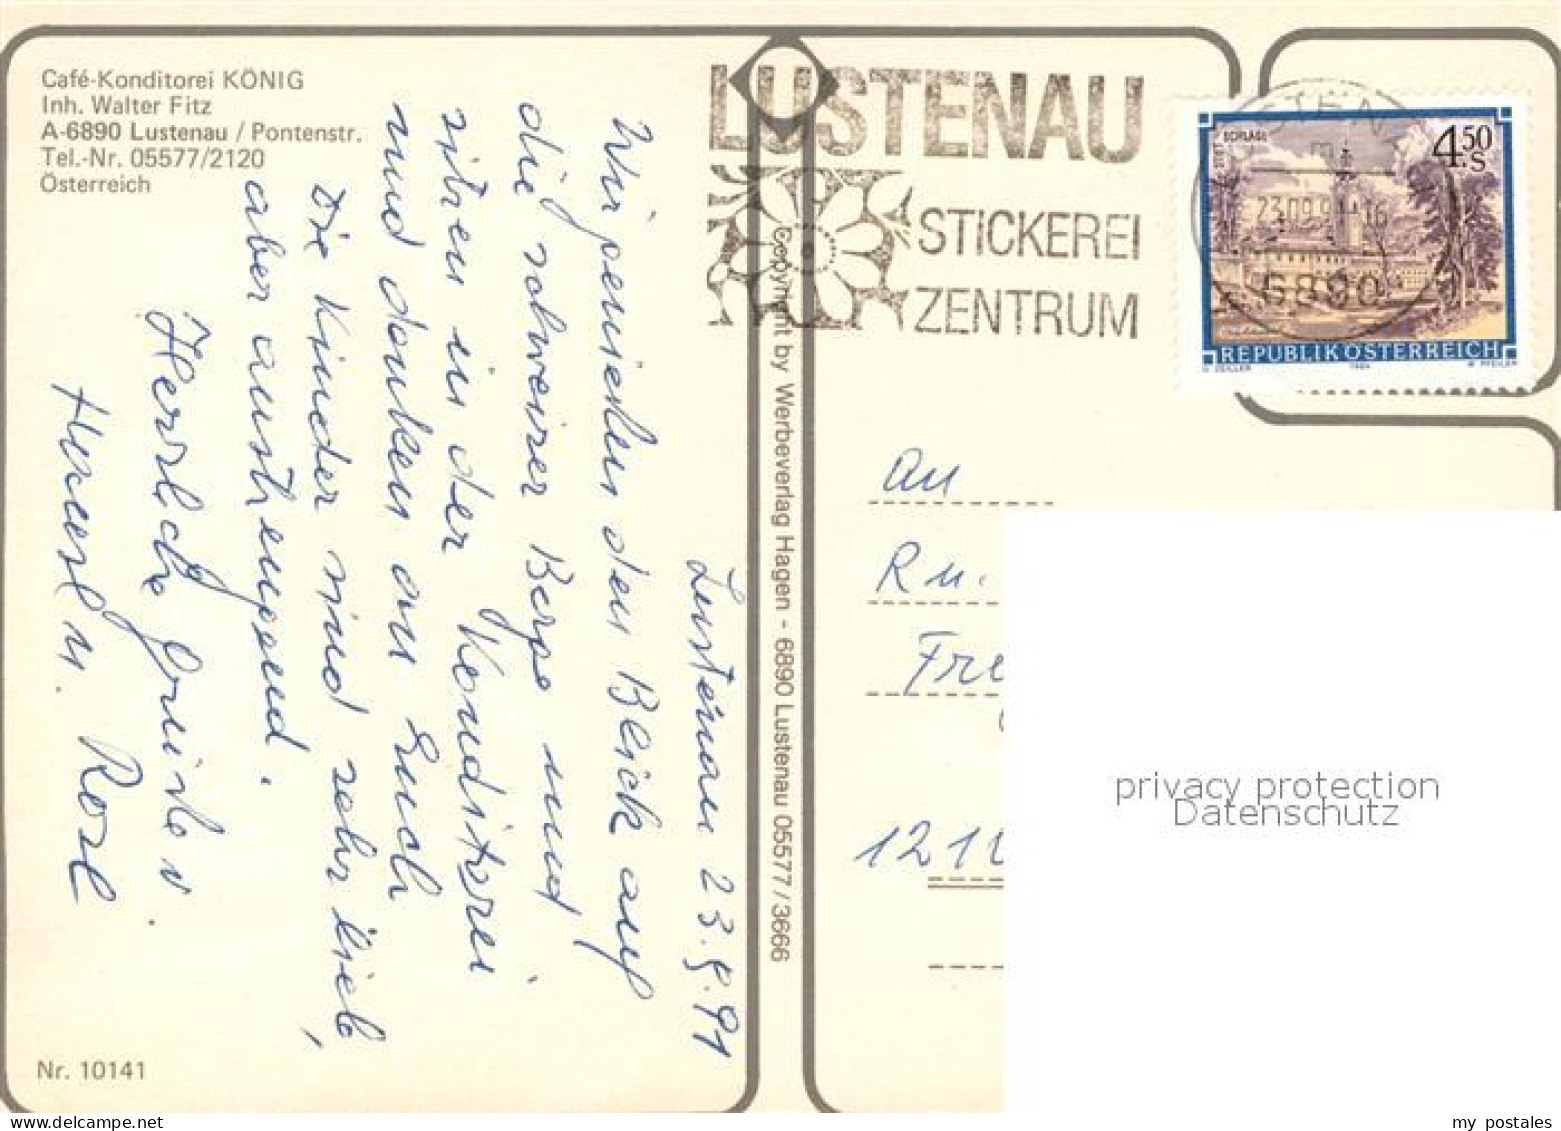 Café-Konditorei KÖNIG
Inh. Walter Fitz
A-6890 Lustenau / Pontenstr.
Tel.-Nr. 05577/2120
Österreich
Lustenau 23.9.91
Wir genießen den Blick auf
die schweizer Berge und
sitzen in der Konditorei
und denken an Euch
Die Kinder sind sehr lieb,
aber anstrengend.
Herzliche Grüße v.
u. Rosl
Nr. 10141
Copyright by Werbeverlag Hagen - 6890 Lustenau 05577/3666
LUSTENAU
STICKEREI
ZENTRUM
23.09.91-16
6890
SCHLÄGL
4.50
S
REPUBLIK ÖSTERREICH
O. ZEILLER 1984 W. PFEILER
An
Ru.
Fre
121
privacy protection
Datenschutz
my postales